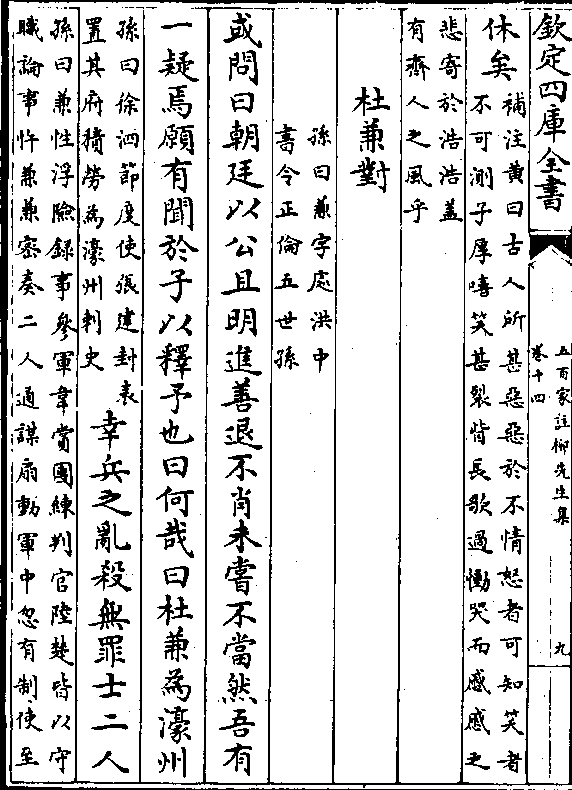 欽定四庫全書
五百家註柳先生集
卷十四
九
休矣
補注黄曰古人所甚惡惡於不情怒者可知笑者
不可測子厚嘻笑甚裂眥長歌過慟哭而感感之
悲寄於浩浩蓋
有齊人之風乎
杜兼對
孫曰兼字處洪中
書令正倫五世孫
或問曰朝廷以公且明進善退不肖未嘗不當然吾有
一疑焉願有聞於子以釋予也曰何哉曰杜兼為濠州
孫曰徐泗節度使張建封表
置其府積勞為濠州刺史
幸兵之亂殺無罪士二人
孫曰兼性浮險録事參軍韋賞團練判官陸楚皆以守
職論事忤兼兼密奏二人通謀扇動軍中忽有制使至